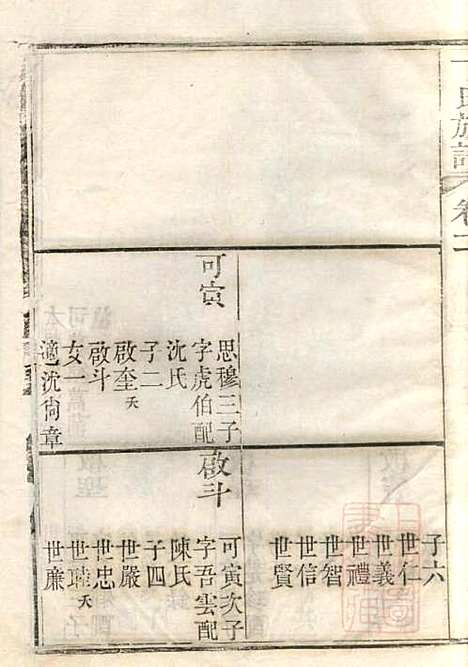 丁氏族譜 卷二
子六
世仁
世義
世禮
世智
世信
世賢
可寅
思穆三子
字虎伯配
沈氏
子二
啟奎夭
啟斗
女一
適沈尙章
啟斗
可寅次子
字吾雲配
陳氏
子四
世嚴
世忠
世㻞夭
世廉